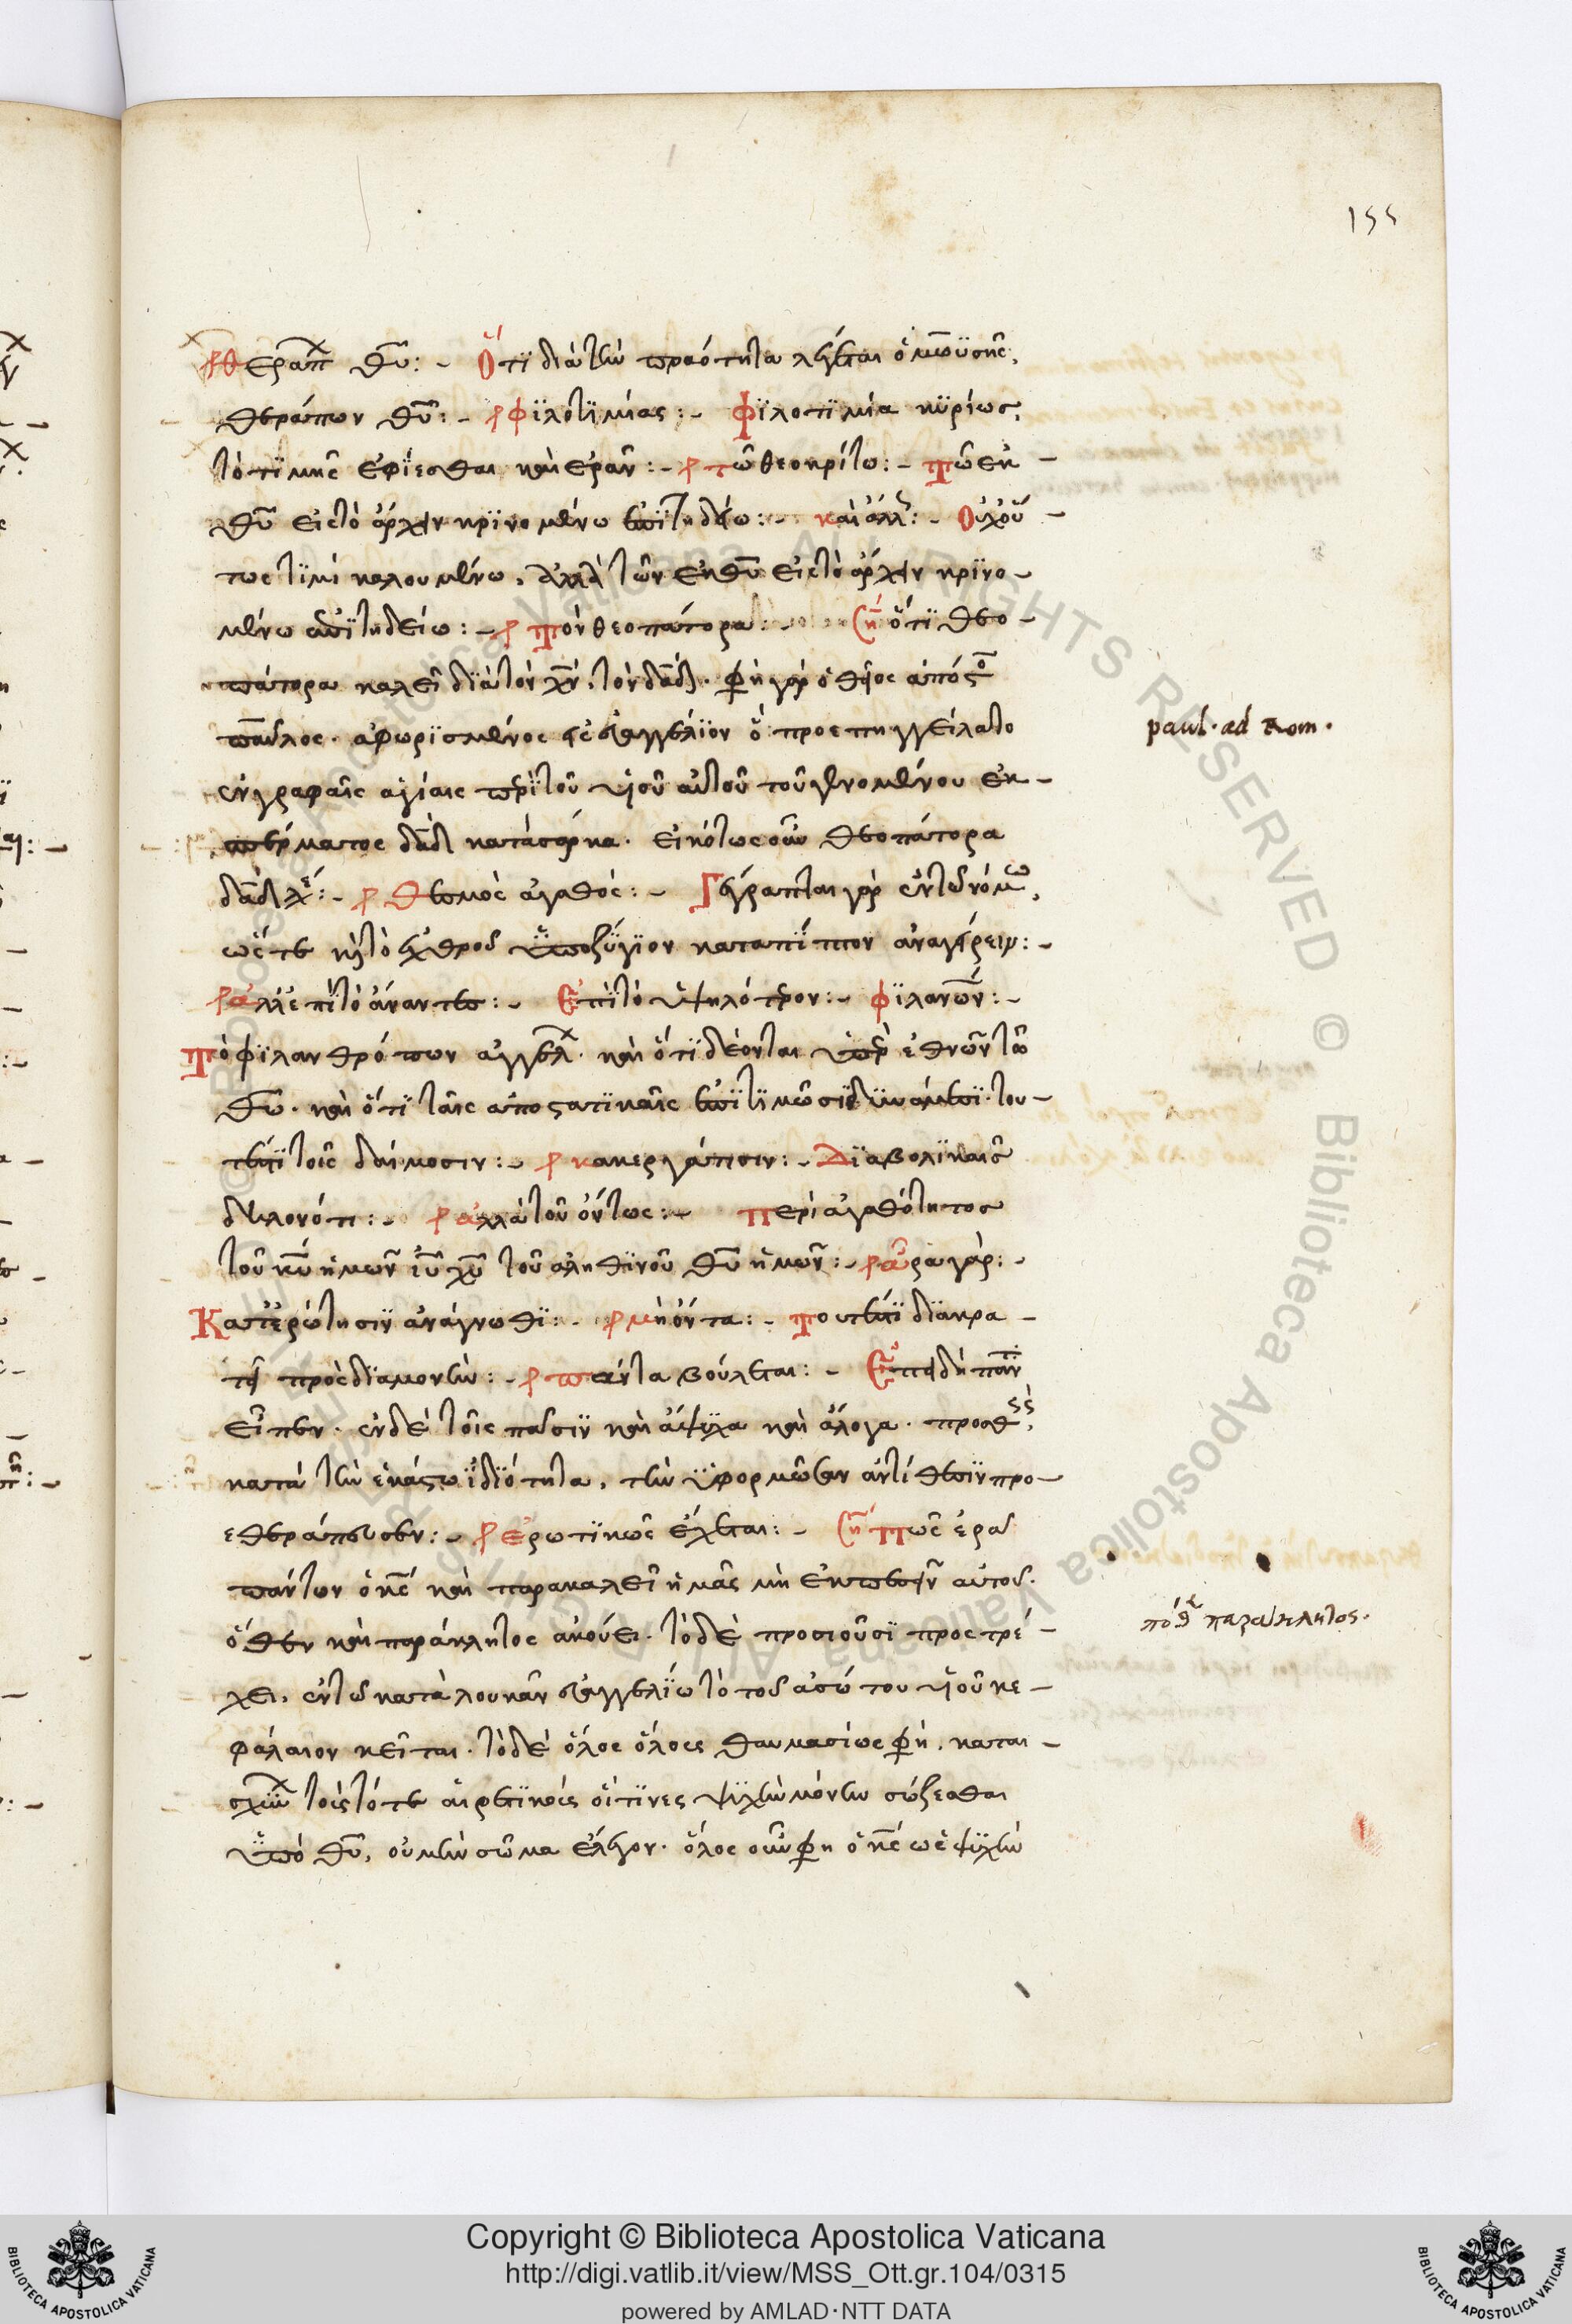 155
θεράπ θυ̅: - Ὅτϊ διὰ τὴν πραότητα λέγεται ὁ μωϋσῆς,
θεράπων θυ̅: - φϊλοτϊμίας: - Φϊλοτϊμία κϋρίως,
τὸ τϊμῆς ἐφΐεσθαι καὶ ἐρᾶν: - τῶ θεοκρίτω: - Τῶ ἐκ -
θυ̅ εἰς τὸ ἄρχειν κρϊνομένω ἐπϊτηδείω: - καὶ ἀλλ: - Οὐχ οὕ -
τως τϊμὶ καλουμένω, ἀλλὰ τῶν ἐκ θυ̅ εἰς τὸ ἄρχειν κρϊνο -
μένω ἐπϊτηδείω: - Τὸν θεοπάτορα: - ὅτϊ θεο -
πάτορα καλεῖ δϊὰ τὸν χν̅, τὸν δαδ̅. φη γὰρ ὁ θεῖος ἀπόστο
παῦλος. ἀφωρϊσμένος εἰς εὐαγγέλϊον ὃ προεπηγγείλατο
ἐν γραφαῖς ἁγίαις περὶ τοῦ υἱοῦ αὐτοῦ τοῦ γενομένου ἐκ -
σπέρματος δαδ̅ κατὰ σάρκα. εἰκότως οὖν θεοπάτορα
δαδ̅ λέ: - Θεσμὸς ἀγαθός: - Γέγραπται γὰρ ἐν τῶ νόμω,
ὥστε καὶ τὸ ἐχθροῦ ὑποζύγϊον καταπΐπτον ἀναγείρειν: -
ἀλλ' ἐπὶ τὸ ἄναντες: - Ἐπὶ τὸ ὑψηλότερον: - φϊλανων: -
Τὸ φϊλανθρώπων ἀγγελ. καὶ ὅτϊ δέονται ὑπὲρ ἐθνῶν τῶ
θω̅. καὶ ὅτϊ ταῖς ἀποστατϊκαῖς ἐπϊτϊμῶσϊ δυνάμεσϊ. του -
τέστϊ τοῖς δαίμοσιν: - κακεργάτισιν: - Δϊαβολϊκαῖς
δηλονότι: - ἀλλὰ τοῦ ὄντως: - Περὶ ἀγαθότητος
τοῦ κυ̅ ἡμῶν ιυ̅ χυ̅ τοῦ ἀληθϊνοῦ θυ̅ ἡμῶν: - ἆρα γὰρ: -
Κατ' ἐρώτησιν ἀνάγνωθϊ: - μὴ ὄντα: - Τουτέστϊ δϊακρα -
τεῖ πρὸς δϊαμονὴν: - πάντα βούλεται: - Ἐπειδὴ παν
εἶπεν. ἐν δὲ τοῖς πᾶσιν καὶ ἄψυχα καὶ ἄλογα. προσθεὶς,
κατὰ τὴν ἑκάστω ἰδϊότητα, τὴν ὑφορμῶσαν ἀντίθεσϊν προ -
εθεράπευσεν: - ἐρωτϊκῶς ἔχεται: - Πῶς ἐρᾶ
πάντων ὁ κς̅ καὶ παρακαλεῖ ἡμᾶς μὴ ἐκπεσεῖν αὐτοῦ.
ὅθεν καὶ παράκλητος ἀκούει. τὸ δὲ προσιοῦσϊ προστρέ -
χει, ἐν τῶ κατὰ λουκᾶν εὐαγγελΐω τὸ τοῦ ἀσώτου υἱοῦ κε -
φάλαιον κεῖται. τὸ δὲ ὅλος ὅλοις θαυμασίως φη, καται -
σχῦν τοῖς τότε αἱρετϊκοῖς οἵτϊνες ψϋχὴν μόνην σώζεσθαι
ὑπὸ θυ̅, οὐ μὴν σῶμα ἔλεγον. ὅλος οὖν φη ὁ κς̅ ὡς ψϋχὴν
paul. ad Rom.
πόθεν παράκλητος.
Copyright © Biblioteca Apostolica Vaticana
http://digi.vatlib.it/view/MSS_Ott.gr.104/0315
powered by AMLAD·NTT DATA
BIBLIOTECA APOSTOLICA VATICANA
BIBLIOTECA APOSTOLICA VATICANA